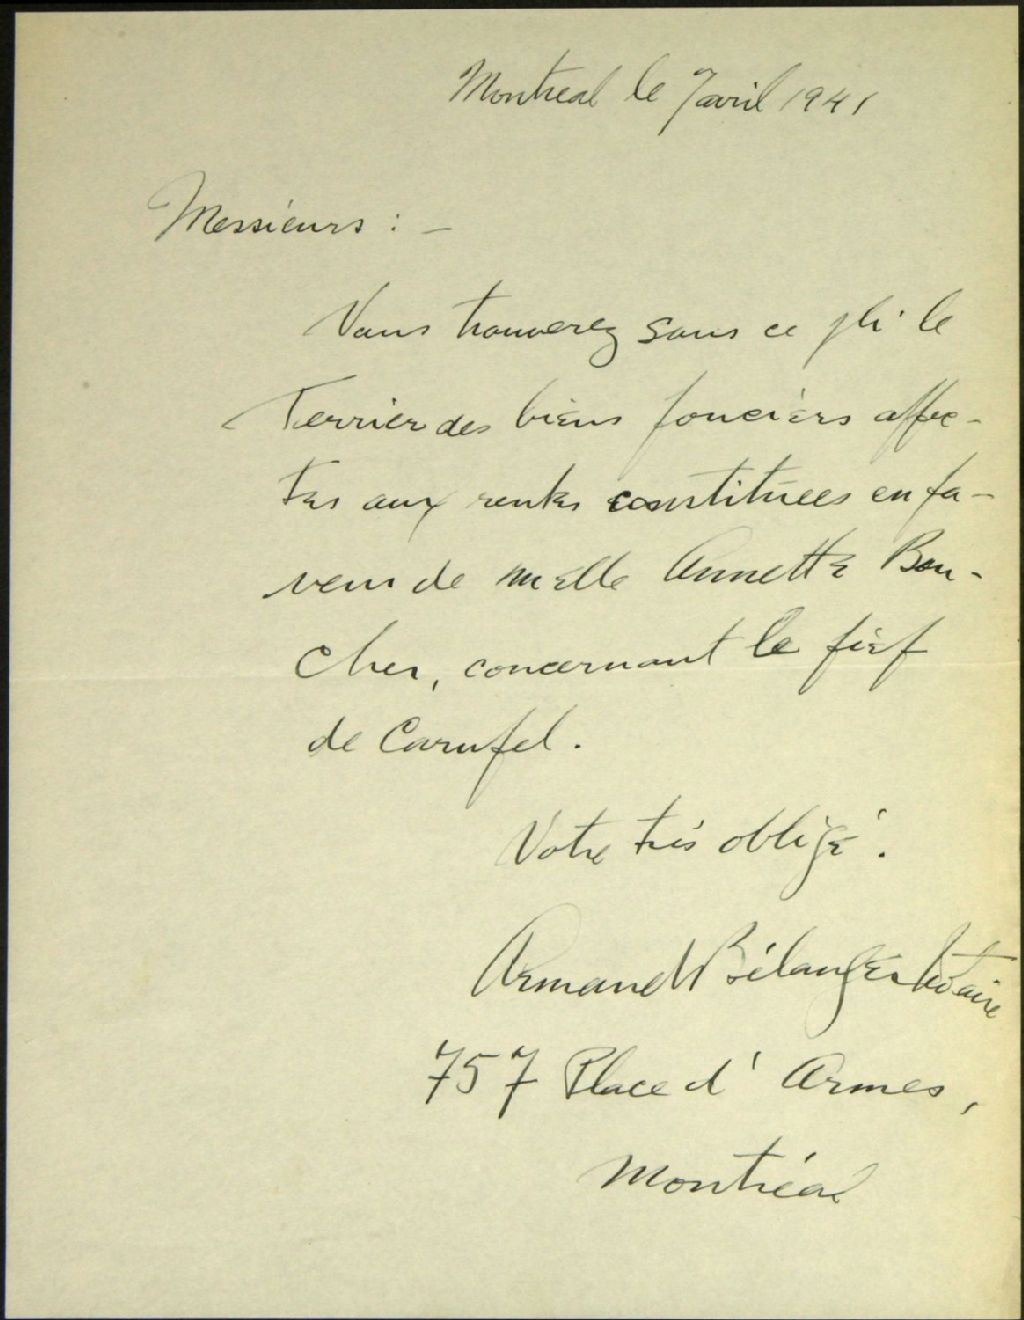 Montreal le 7 avril 1941
Messieurs : -
Vous trouverez sous ce pli le
Terrier des biens fonciers affec-
tés aux rentes constituées en fa-
veur de melle Annette Bou-
cher, concernant le fief
de Carufel.
Votre très obligé.
Armand Bélanger Notaire
757 Place d' Armes,
Montréal